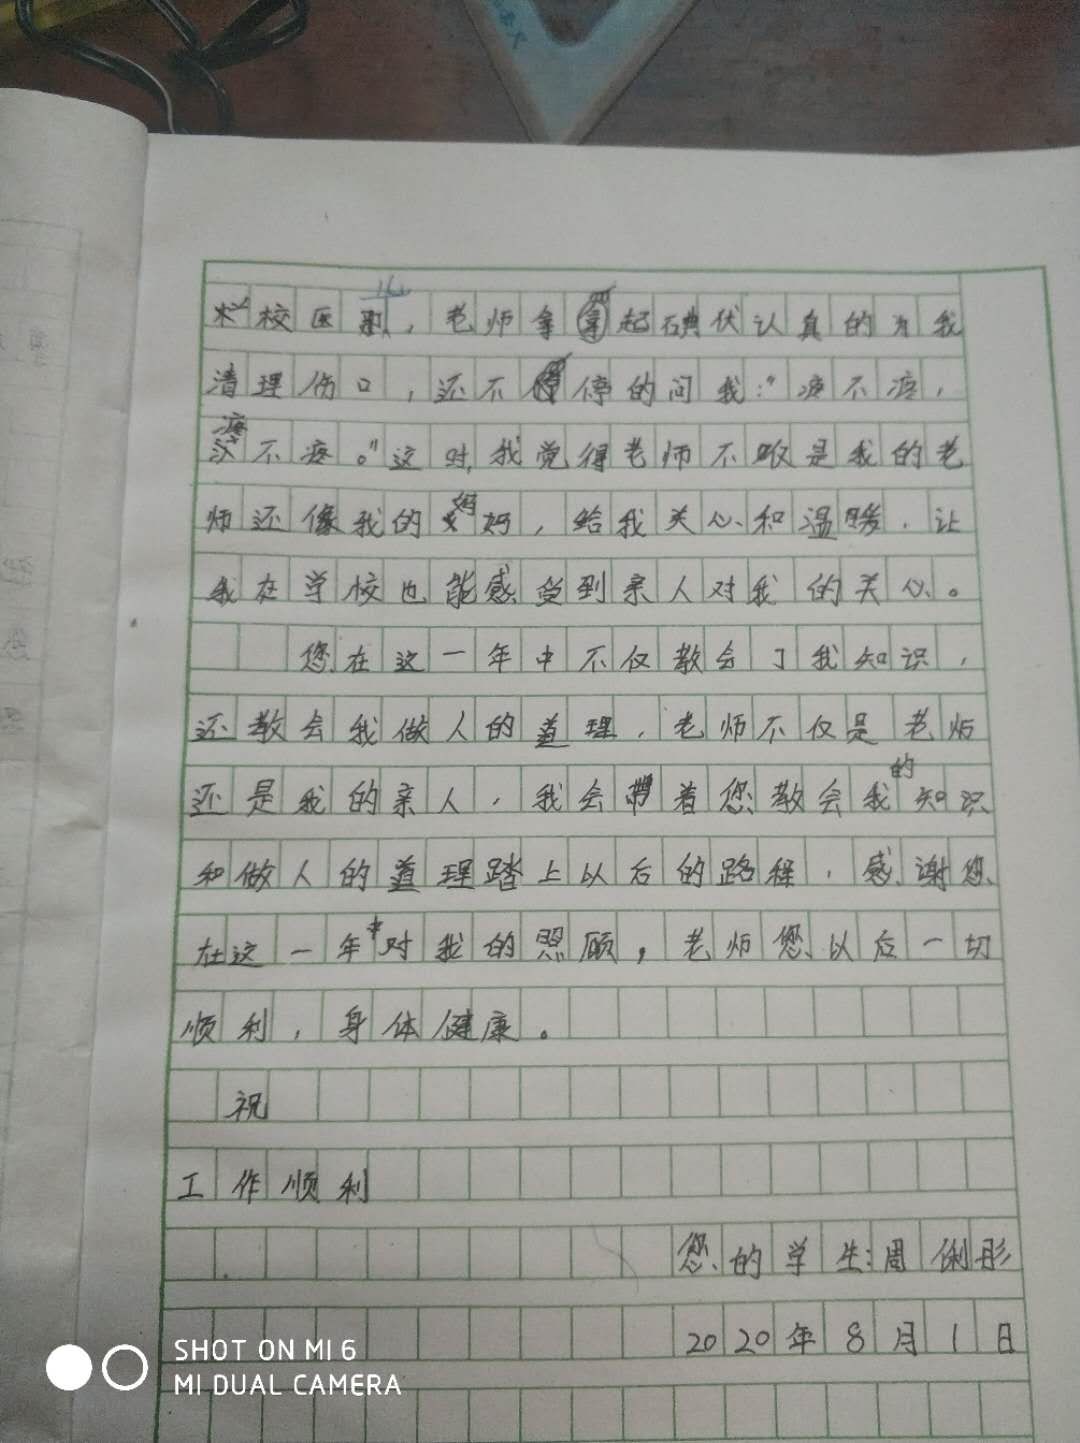 校医那，老师拿起碘伏认真的为我
清理伤口，还不停的问我：“疼不疼，
疼不疼。”这时，我觉得老师不仅是我的老
师还像我的妈妈，给我关心和温暖，让
我在学校也能感受到亲人对我的关心。
您在这一年中不仅教会了我知识，
还教会我做人的道理，老师不仅是老师
还是我的亲人，我会带着您教会我的知识
和做人的道理踏上以后的路程，感谢您
在这一年中对我的照顾，老师您以后一切
顺利，身体健康。
祝
工作顺利
您的学生：周俐彤
2020年8月1日
SHOT ON MI 6
MI DUAL CAMERA